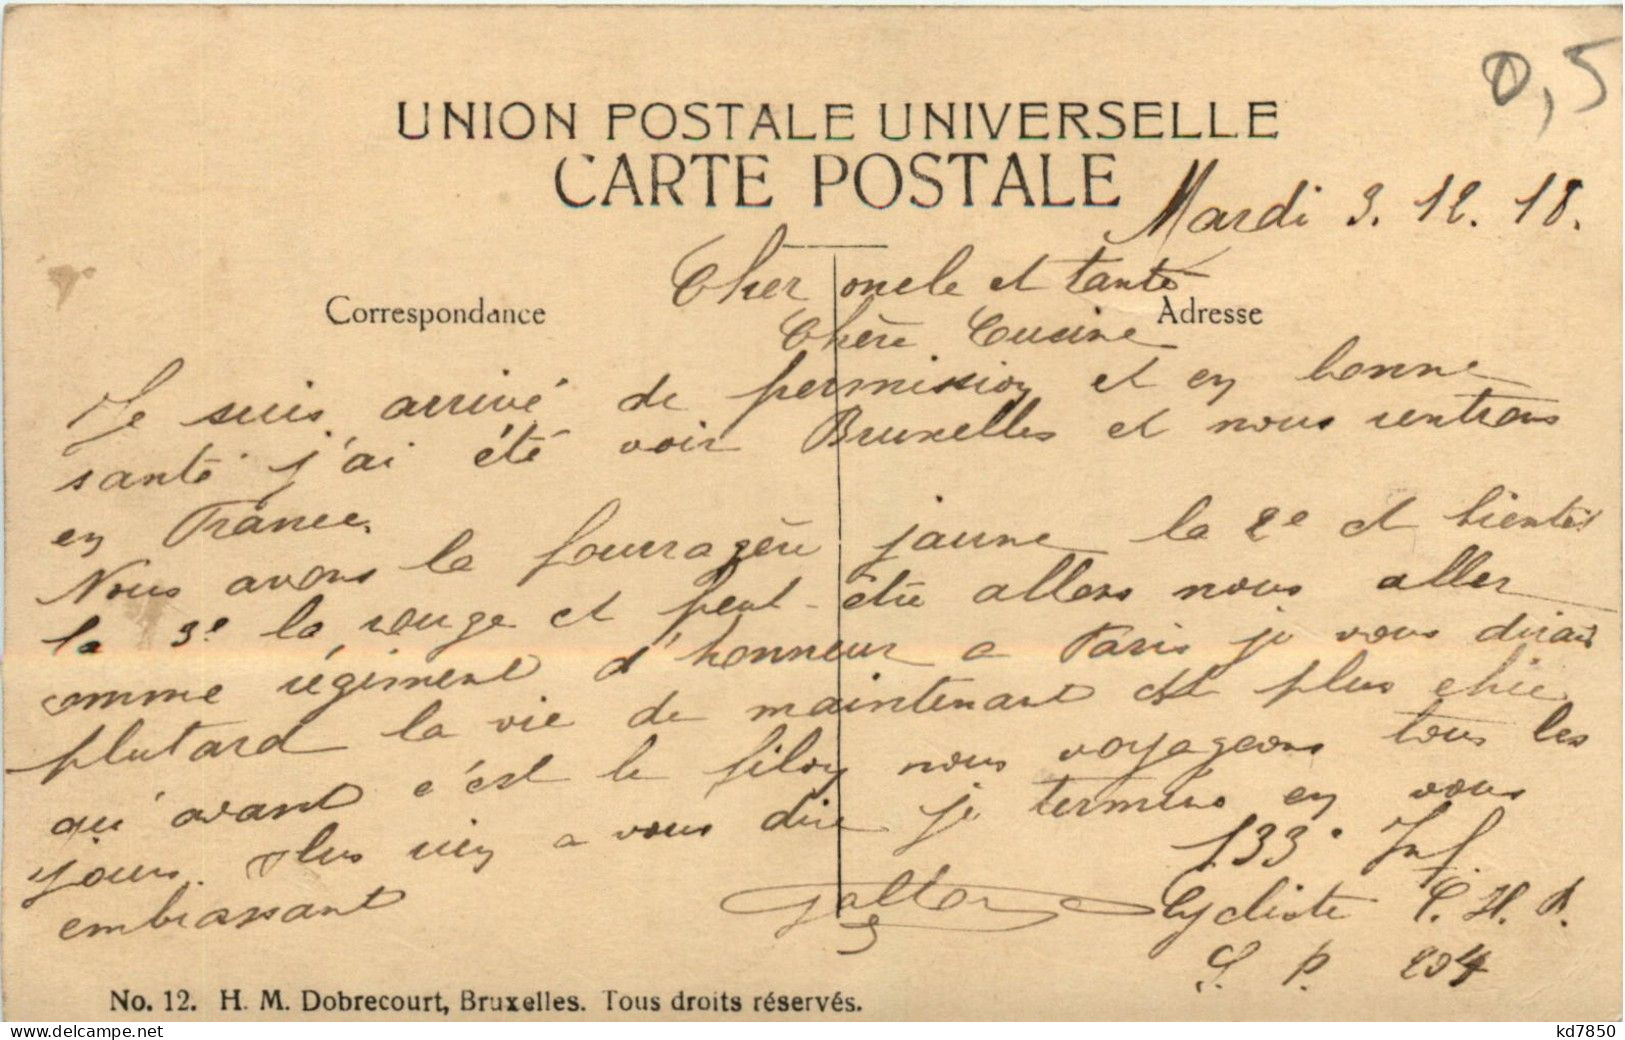 0,5
UNION POSTALE UNIVERSELLE
CARTE POSTALE
Mardi 3. 12. 18.
Cher oncle et tante
Correspondance
Adresse
Chère Cusine
Je suis arrivé de permission et en bonne
santé j'ai été voir Bruxelles et nous rentrons
en France.
Nous avons la fourragère jaune la 2e et bientôt
la 3e la rouge et peut-être allons nous aller
comme régiment d'honneur a Paris je vous dirais
plutard la vie de maintenant est plus chic
qu'avant c'est le filon nous voyageons tous les
jours. Plus rien a vous dire je termine en vous
embrassant
133e Inf.
Cycliste C. H. R.
S. P. 204
No. 12. H. M. Dobrecourt, Bruxelles. Tous droits réservés.
kd7850